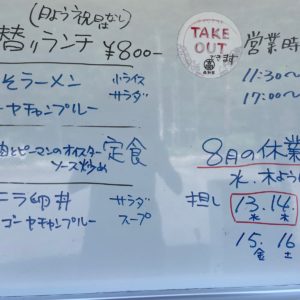 (日よう祝日はなし)
替りランチ ¥800-
そラーメン 小ライス
サラダ
ーヤチャンプルー
肉とピーマンのオイスター
ソース炒め 定食
ニラ卵丼 サラダ
ゴーヤチャンプルー スープ
TAKE
OUT
できます
営業時
11:30～
17:00～
8月の休業
水、木よう
但し 13.14.
水 木
15. 16
金 土